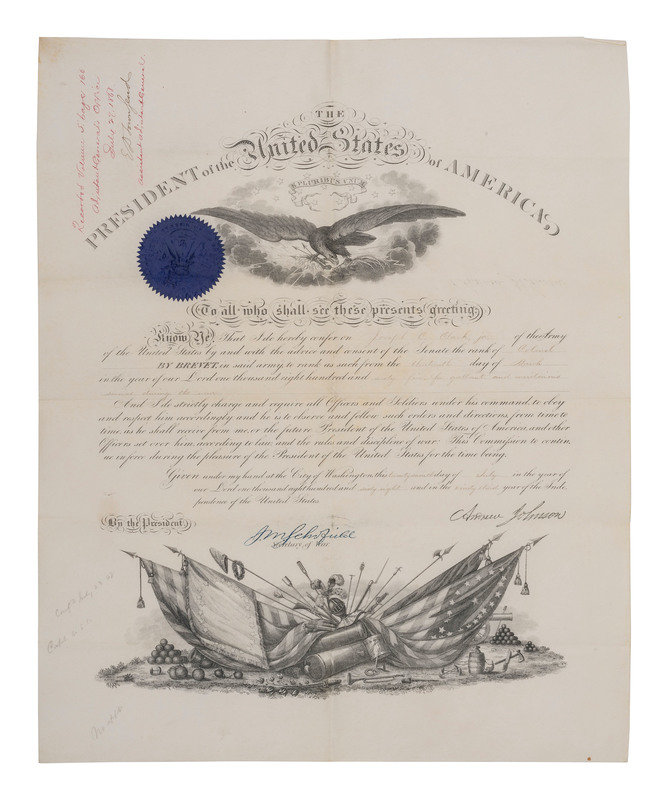 THE
PRESIDENT of the United States of AMERICA,
E PLURIBUS UNUM
To all who shall see these presents greeting:
Know Ye, That I do hereby confer on of the Army
of the United States by and with the advice and consent of the Senate the rank of Colonel
BY BREVET, in said army, to rank as such from the thirteenth day of March
in the year of our Lord one thousand eight hundred and sixty five for gallant and meritorious
service during the war
And I do strictly charge and require all Officers and Soldiers under his command to obey
and respect him accordingly and he is to observe and follow such orders and directions, from time to
time, as he shall receive from me, or the future President of the United States of America, and other
Officers set over him, according to law, and the rules and discipline of war. This Commission to contin
ue in force during the pleasure of the President of the United States for the time being.
Given under my hand at the City of Washington, this day of July in the year of
our Lord one thousand eight hundred and sixty eight and in the ninety third year of the Inde
pendence of the United States
By the President
Andrew Johnson
JMSchofield
Secretary of War.
Recorded Volume Page 166
Adjutant General's Office
Sept 1868
ED Townsend
Assistant Adjutant General.